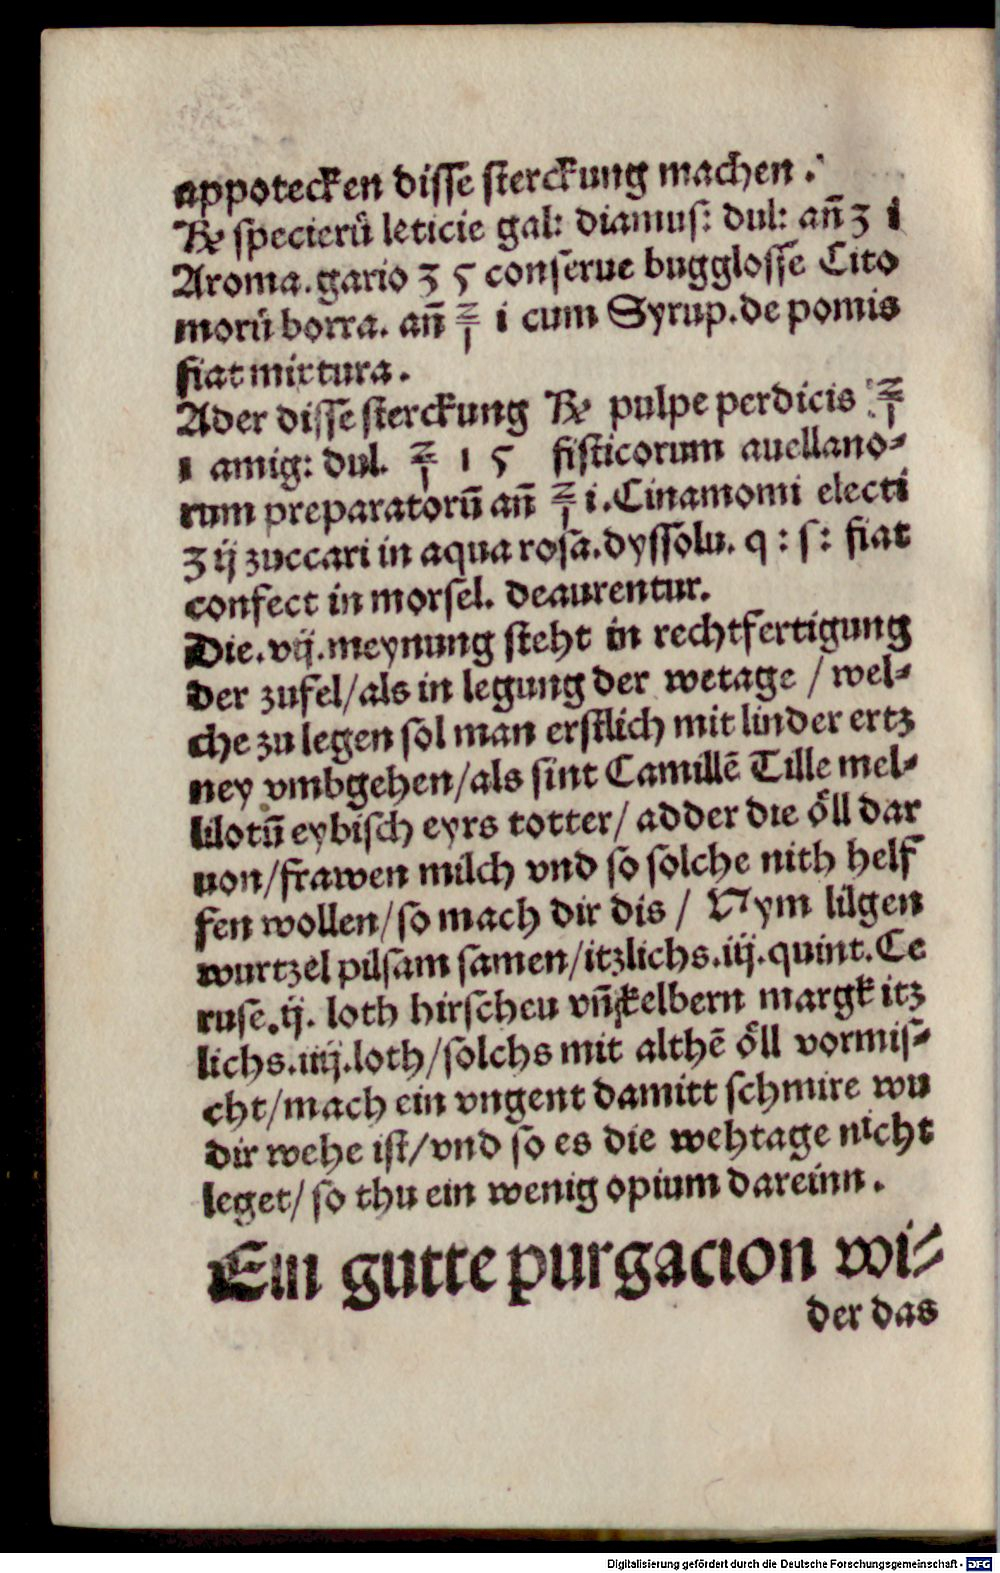 appotecken disse sterckung machen.
℞ specierū leticie gal: diamus: dul: an̄ ʒ i
Aroma.gario ʒ 5 conserue bugglosse Cito
morū borra. an̄ ℥ i cum Syrup.de pomis
fiat mixtura.
Ader disse sterckung ℞ pulpe perdicis ℥
i amig: dul. ℥ i 5 fisticorum auellano-
rum preparatorū an̄ ℥ i. Cinamomi electi
ʒ ij zuccari in aqua rosa.dyssolu. q: s: fiat
confect in morsel. deaurentur.
Die.vij.meynung steht in rechtfertigung
der zufel/als in legung der wetage / wel-
che zu legen sol man erstlich mit linder ertz
ney vmbgehen/als sint Camillē Tille mel-
lilotū eybisch eyrs totter/ adder die öll dar
uon/frawen milch vnd so solche nith helf
fen wollen/so mach dir dis / Nym lilgen
wurtzel pilsam samen/itzlichs.iij.quint.Ce
ruse.ij. loth hirschen vn̄ kelbern margk itz
lichs.iiij.loth/solchs mit althē öll vormis-
cht/mach ein vngent damitt schmire wu
dir wehe ist/vnd so es die wehtage nicht
leget/ so thu ein wenig opium dareinn.
Ein gutte purgacion wi-
der das
Digitalisierung gefördert durch die Deutsche Forschungsgemeinschaft - DFG